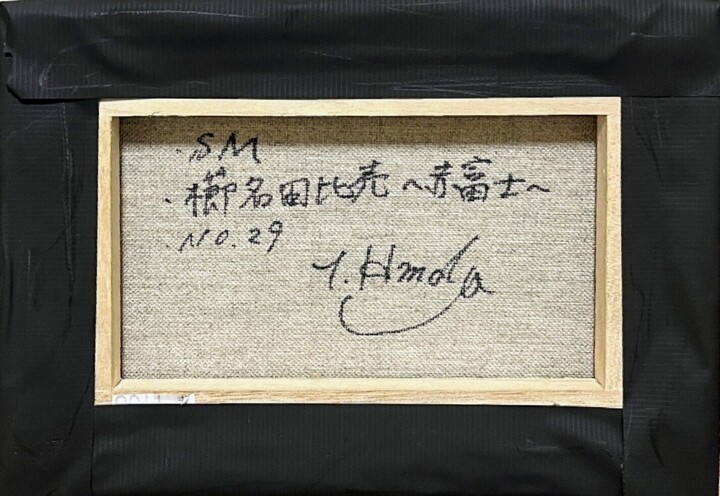 ・SM
・櫛名田比売～赤富士～
・NO.29